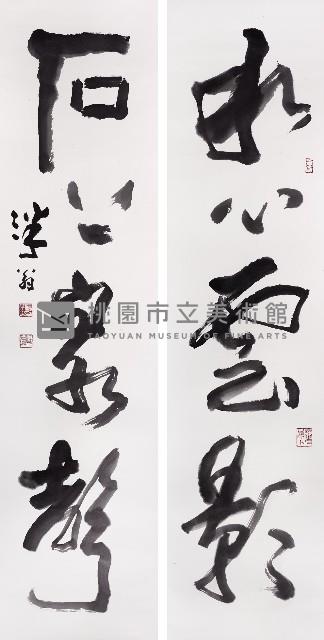 水心雲影
石上泉聲
漢翁
桃園市立美術館
TAOYUAN MUSEUM OF FINE ARTS